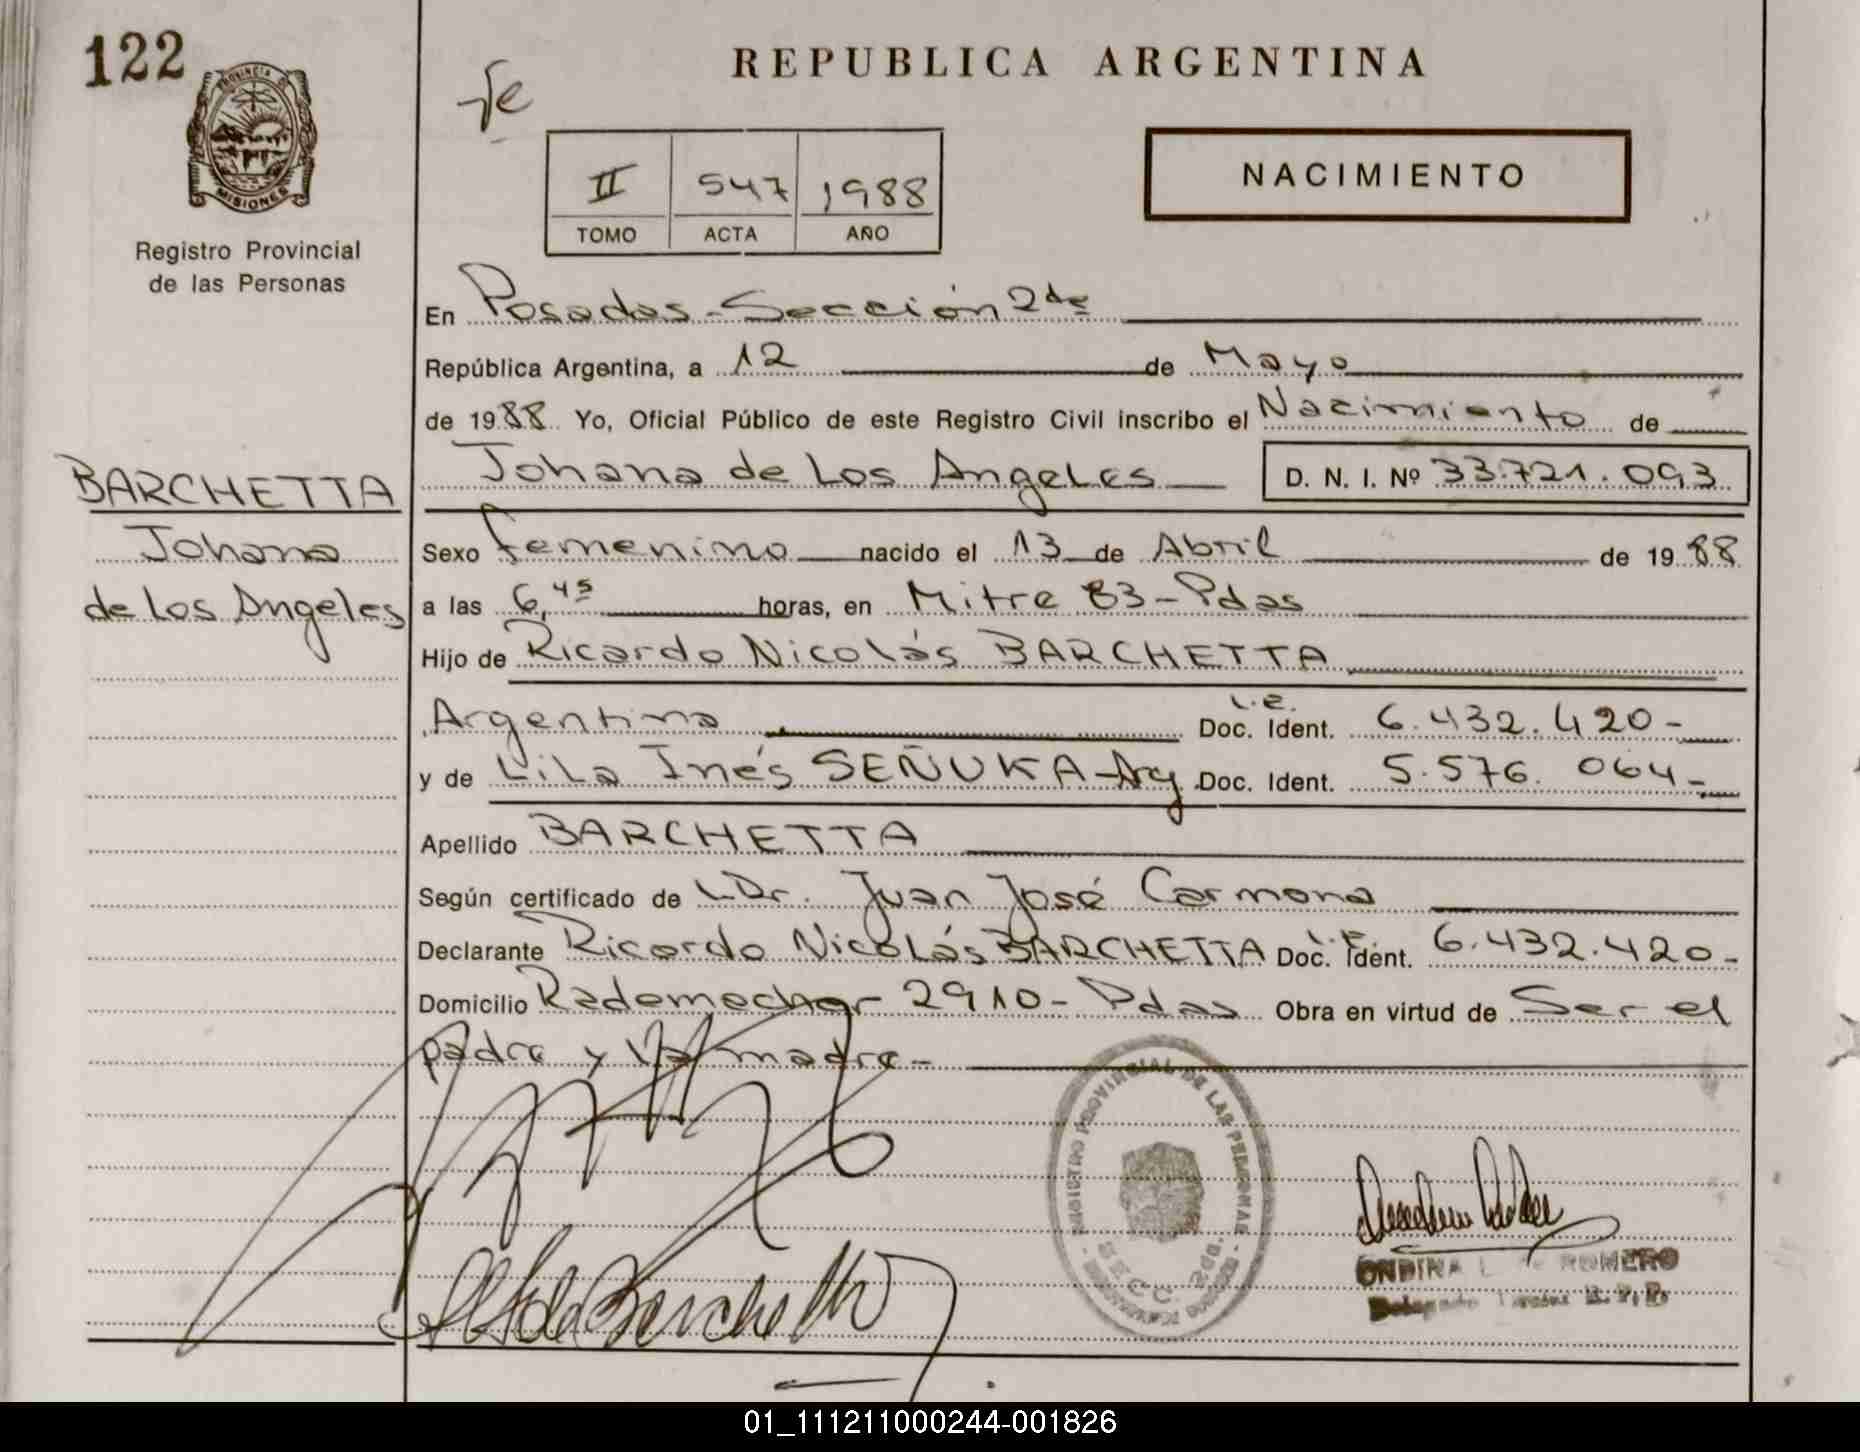 122
PROVINCIA D
MISIONES
Registro Provincial
de las Personas
REPUBLICA ARGENTINA
II 547 1988
TOMO ACTA AÑO
NACIMIENTO
En Posadas - Sección 2da
República Argentina, a 12 de Mayo
de 1988 Yo, Oficial Público de este Registro Civil inscribo el Nacimiento de
Johana de Los Angeles D. N. I. Nº 33.721.093
BARCHETTA
Johana
de Los Angeles
Sexo femenino nacido el 13 de Abril de 1988
a las 6,45 horas, en Mitre 83 - Pdas
Hijo de Ricardo Nicolás BARCHETTA
Argentino L.E. Doc. Ident. 6.432.420-
y de Lila Inés SEÑUKA - Arg Doc. Ident. 5.576.064-
Apellido BARCHETTA
Según certificado de Dr. Juan José Carmona
Declarante Ricardo Nicolás BARCHETTA L.E. Doc. Ident. 6.432.420-
Domicilio Rademacher 2910 - Pdas Obra en virtud de Ser el
padre y la madre-
REGISTRO PROVINCIAL DE LAS PERSONAS
SECC.
ONDINA L. de ROMERO
Barchetta
01_111211000244-001826